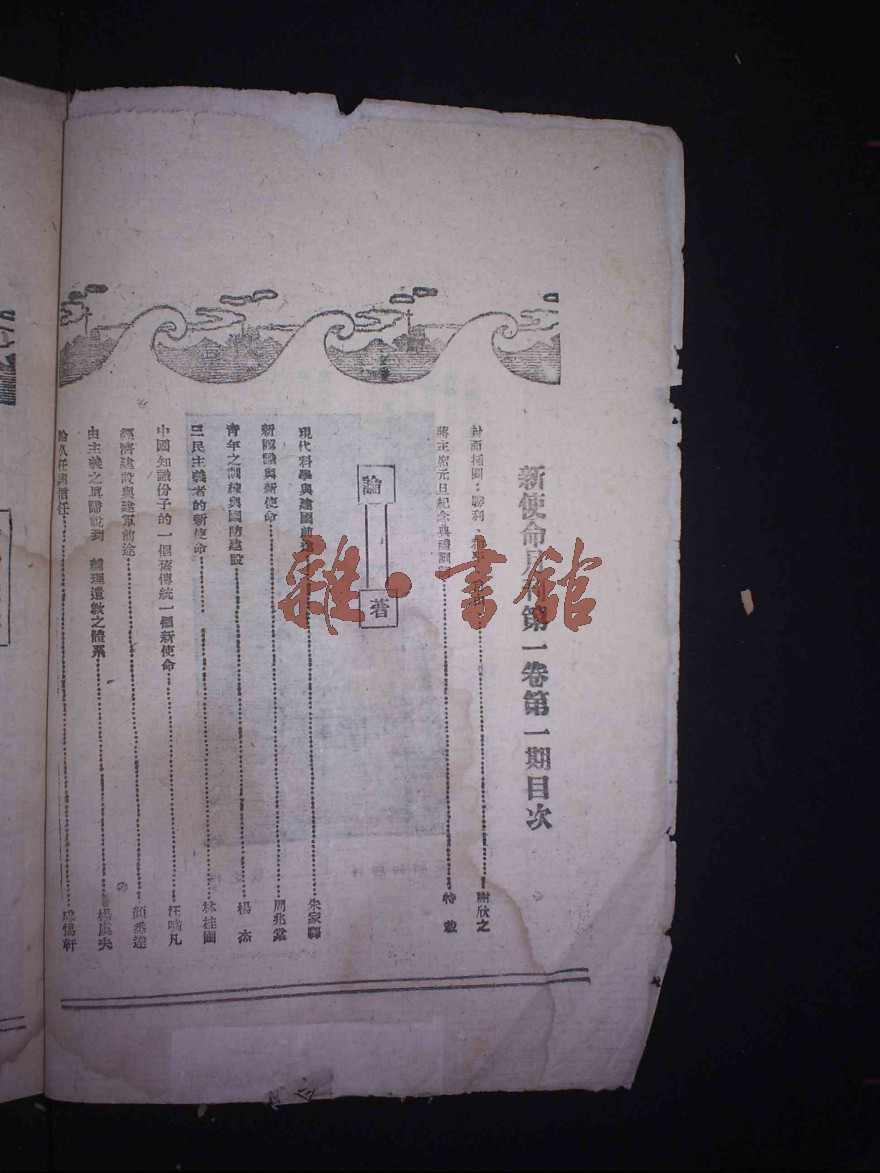 新使命月刊第一卷第一期目次
封面插圖：勝利、
謝欣之
蔣主席元旦紀念典禮訓
特載
論著
現代科學與建國前途
朱家驊
新認識與新使命
周兆棠
青年之訓練與國防建設
楊杰
三民主義者的新使命
林桂圃
中國知識份子的一個舊傳統一個新使命
汪嘯凡
經濟建設與建軍前途
顏悉達
由主義之眞歸說到 總理遺敎之體系
楊虞夫
論久任與信任
成惕軒
雜·書館